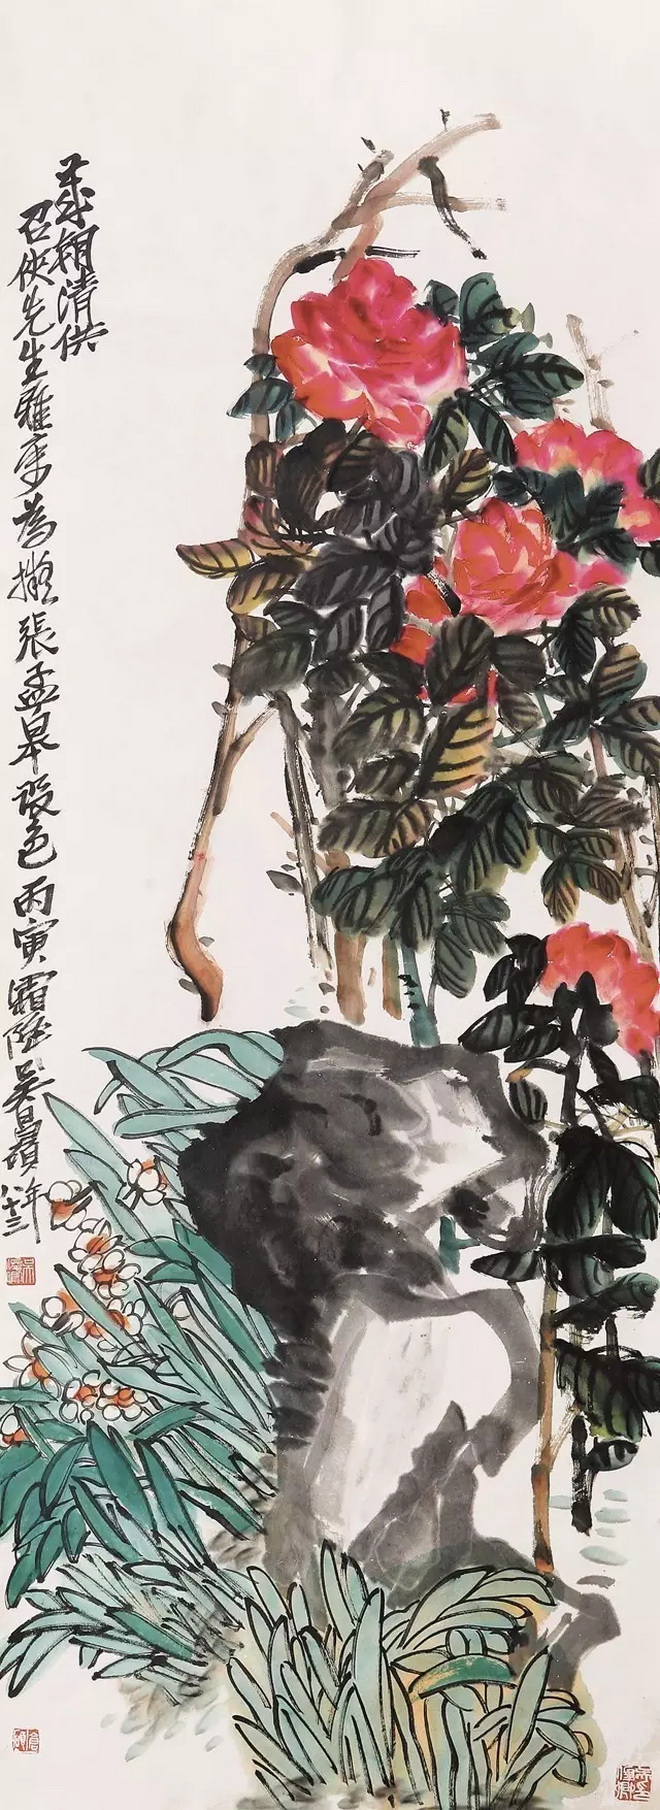 歲朝清供
召俠先生雅屬為擬張孟皋設色丙寅霜降吳昌碩年八十三